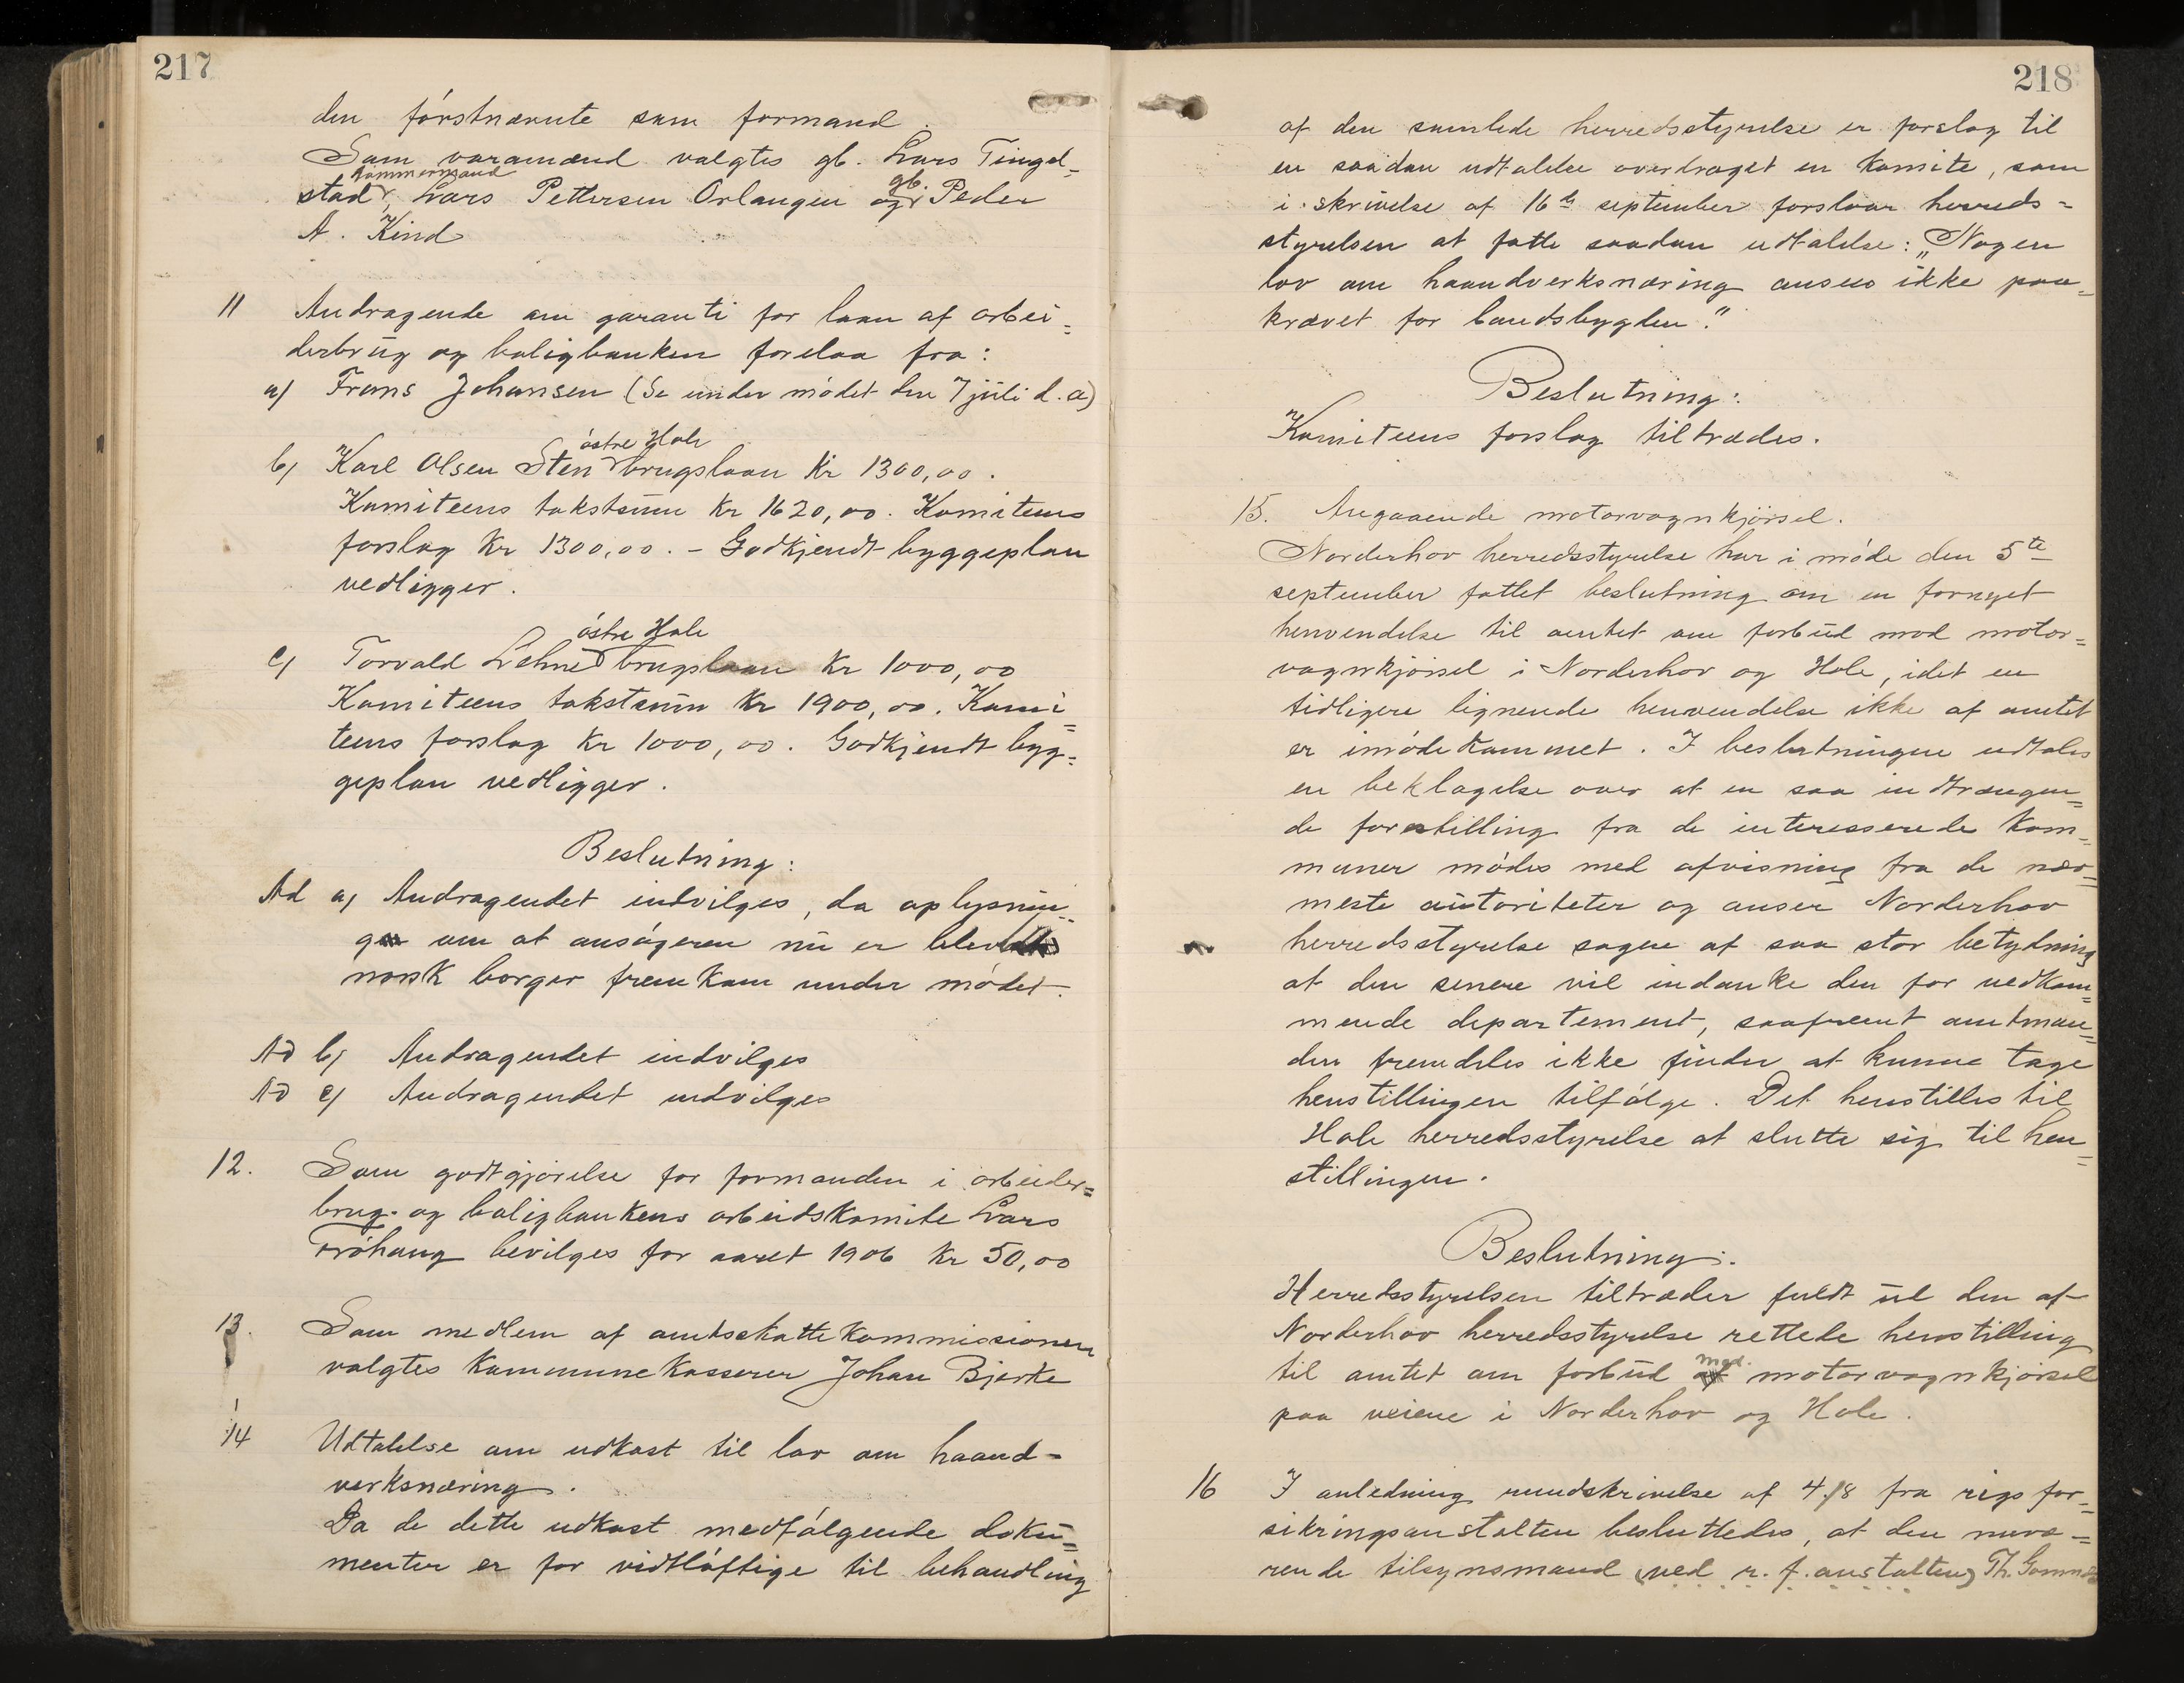 217
den förstnævnte som formand.
Som varamænd valgtes gb. Lars Tingel-
kommermand
gb.
stad, Lars Pettersen Orlangen og Peder
A. Kind
11 Andragende om garanti for laan af arbei=
derbrug og boligbanken forelaa fra:
a) Frans Johansen (Se under mödet den 7 juli d. a)
östre Hole
b) Karl Olsen Sten brugslaan Kr 1300,00.
Komiteens takstsum Kr 1620,00. Komiteens
forslag Kr 1300,00. - Godkjendt byggeplan
vedligger.
östre Hole
c) Torvald Lehne brugslaan Kr 1000,00
Komiteens takstsum Kr 1900,00. Komi=
teens forslag Kr 1000,00. Godkjendt byg=
geplan vedligger.
Beslutning:
Ad a) Andragendet indvilges, da oplysnin-
gen om at ansögeren nu er blevet
norsk borger fremkom under mödet.
Ad b) Andragendet indvilges
Ad c) Andragendet indvilges
12. Som godtgjörelse for formanden i arbeider=
brug- og boligbankens arbeidskomite Lars
Fröhaug bevilges for aaret 1906 Kr 50,00
13. Som medlem af amtsskattekommissionen
valgtes kommunekasserer Johan Bjerke
14 Udtalelse om udkast til lov om haand-
verksnæring.
Da de dette udkast medfölgende doku=
menter er for vidtlöftige til behandling
218
af den samlede herredsstyrelse er forslag til
en saadan udtalelse overdraget en komite, som
i skrivelse af 16de september forslaar herreds=
styrelsen at fatte saadan udtalelse: „Nogen
lov om haandverksnæring ansees ikke paa-
krævet for landsbygden."
Beslutning:
Komiteens forslag tiltrædes.
15. Angaaende motorvognkjörsel.
Norderhov herredsstyrelse har i möde den 5te
september fattet beslutning om en fornyet
henvendelse til amtet om forbud mod motor=
vognkjörsel i Norderhov og Hole, idet en
tidligere lignende henvendelse ikke af amtet
er imödekommet. I beslutningen udtales
en beklagelse over at en saa indtrængen=
de forestilling fra de interesserede kom-
muner mödes med afvisning fra de nær=
meste autoriteter og anser Norderhov
herredsstyrelse sagen af saa stor betydning
at den senere vil indanke den for vedkom=
mende departement, saafremt amtman=
den fremdeles ikke finder at kunne tage
henstillingen tilfölge. Det henstilles til
Hole herredsstyrelse at slutte sig til hen=
stillingen.
Beslutning:
Herredsstyrelsen tiltræder fuldt ut den af
Norderhov herredsstyrelse rettede henstilling
mod
til amtet om forbud af motorvognkjörsel
paa veiene i Norderhov og Hole.
16 I anledning rundskrivelse af 4/8 fra rigsfor=
sikringsanstalten besluttedes, at den nuvæ=
rende tilsynsmand (ved r. f. anstalten) Th.